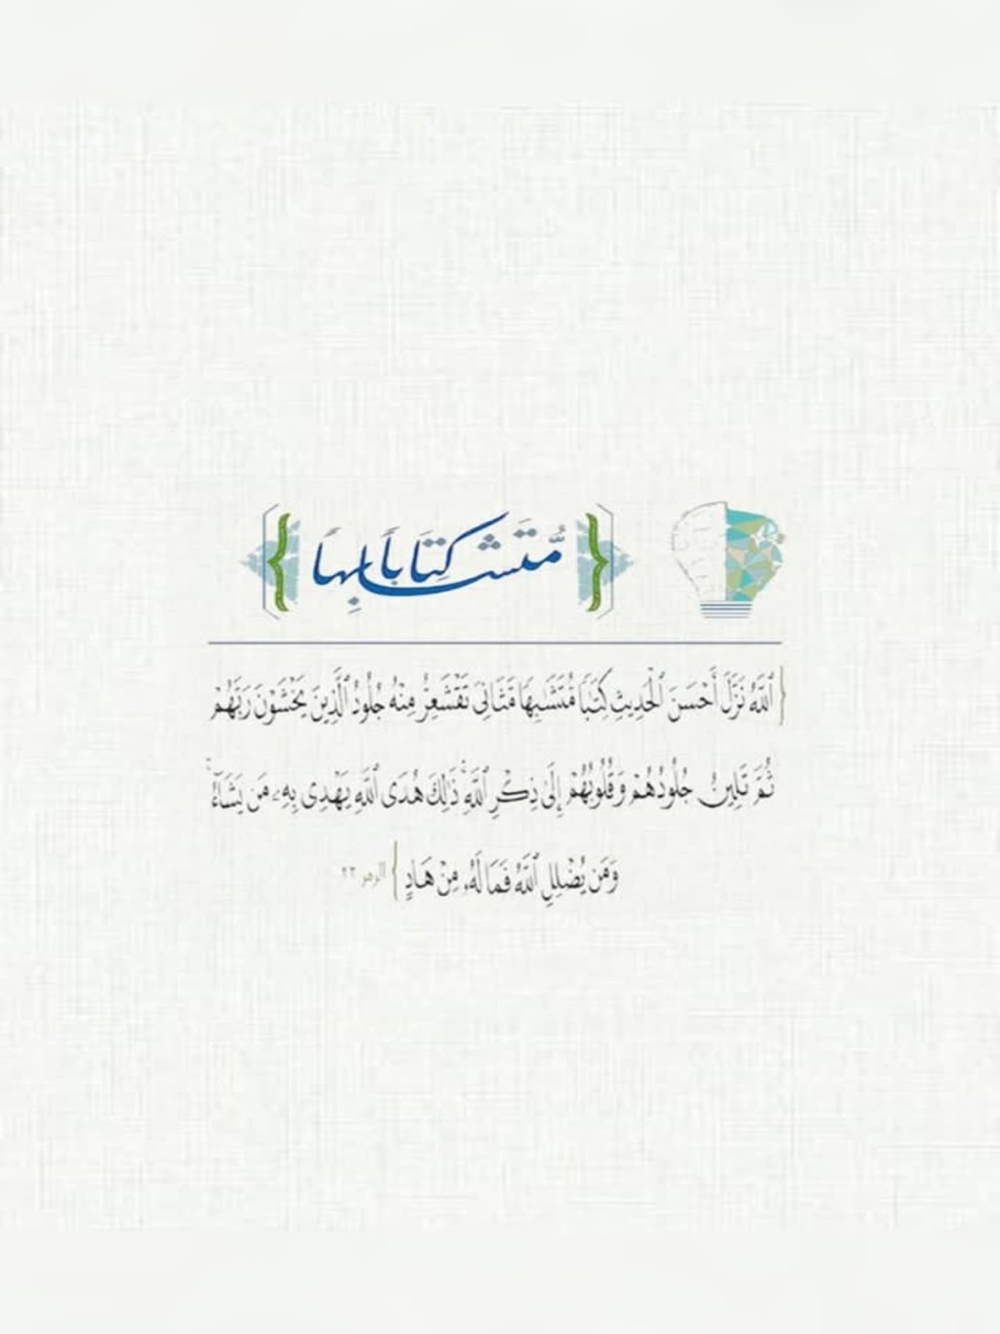 كِتَاباً مُّتَشَابِهاً
ٱللَّهُ نَزَّلَ أَحْسَنَ ٱلْحَدِيثِ كِتَٰبًا مُّتَشَٰبِهًا مَّثَانِىَ تَقْشَعِرُّ مِنْهُ جُلُودُ ٱلَّذِينَ يَخْشَوْنَ رَبَّهُمْ
ثُمَّ تَلِينُ جُلُودُهُمْ وَقُلُوبُهُمْ إِلَىٰ ذِكْرِ ٱللَّهِ ۚ ذَٰلِكَ هُدَى ٱللَّهِ يَهْدِى بِهِۦ مَن يَشَآءُ ۚ
وَمَن يُضْلِلِ ٱللَّهُ فَمَا لَهُۥ مِنْ هَادٍ } الزمر ٢٣